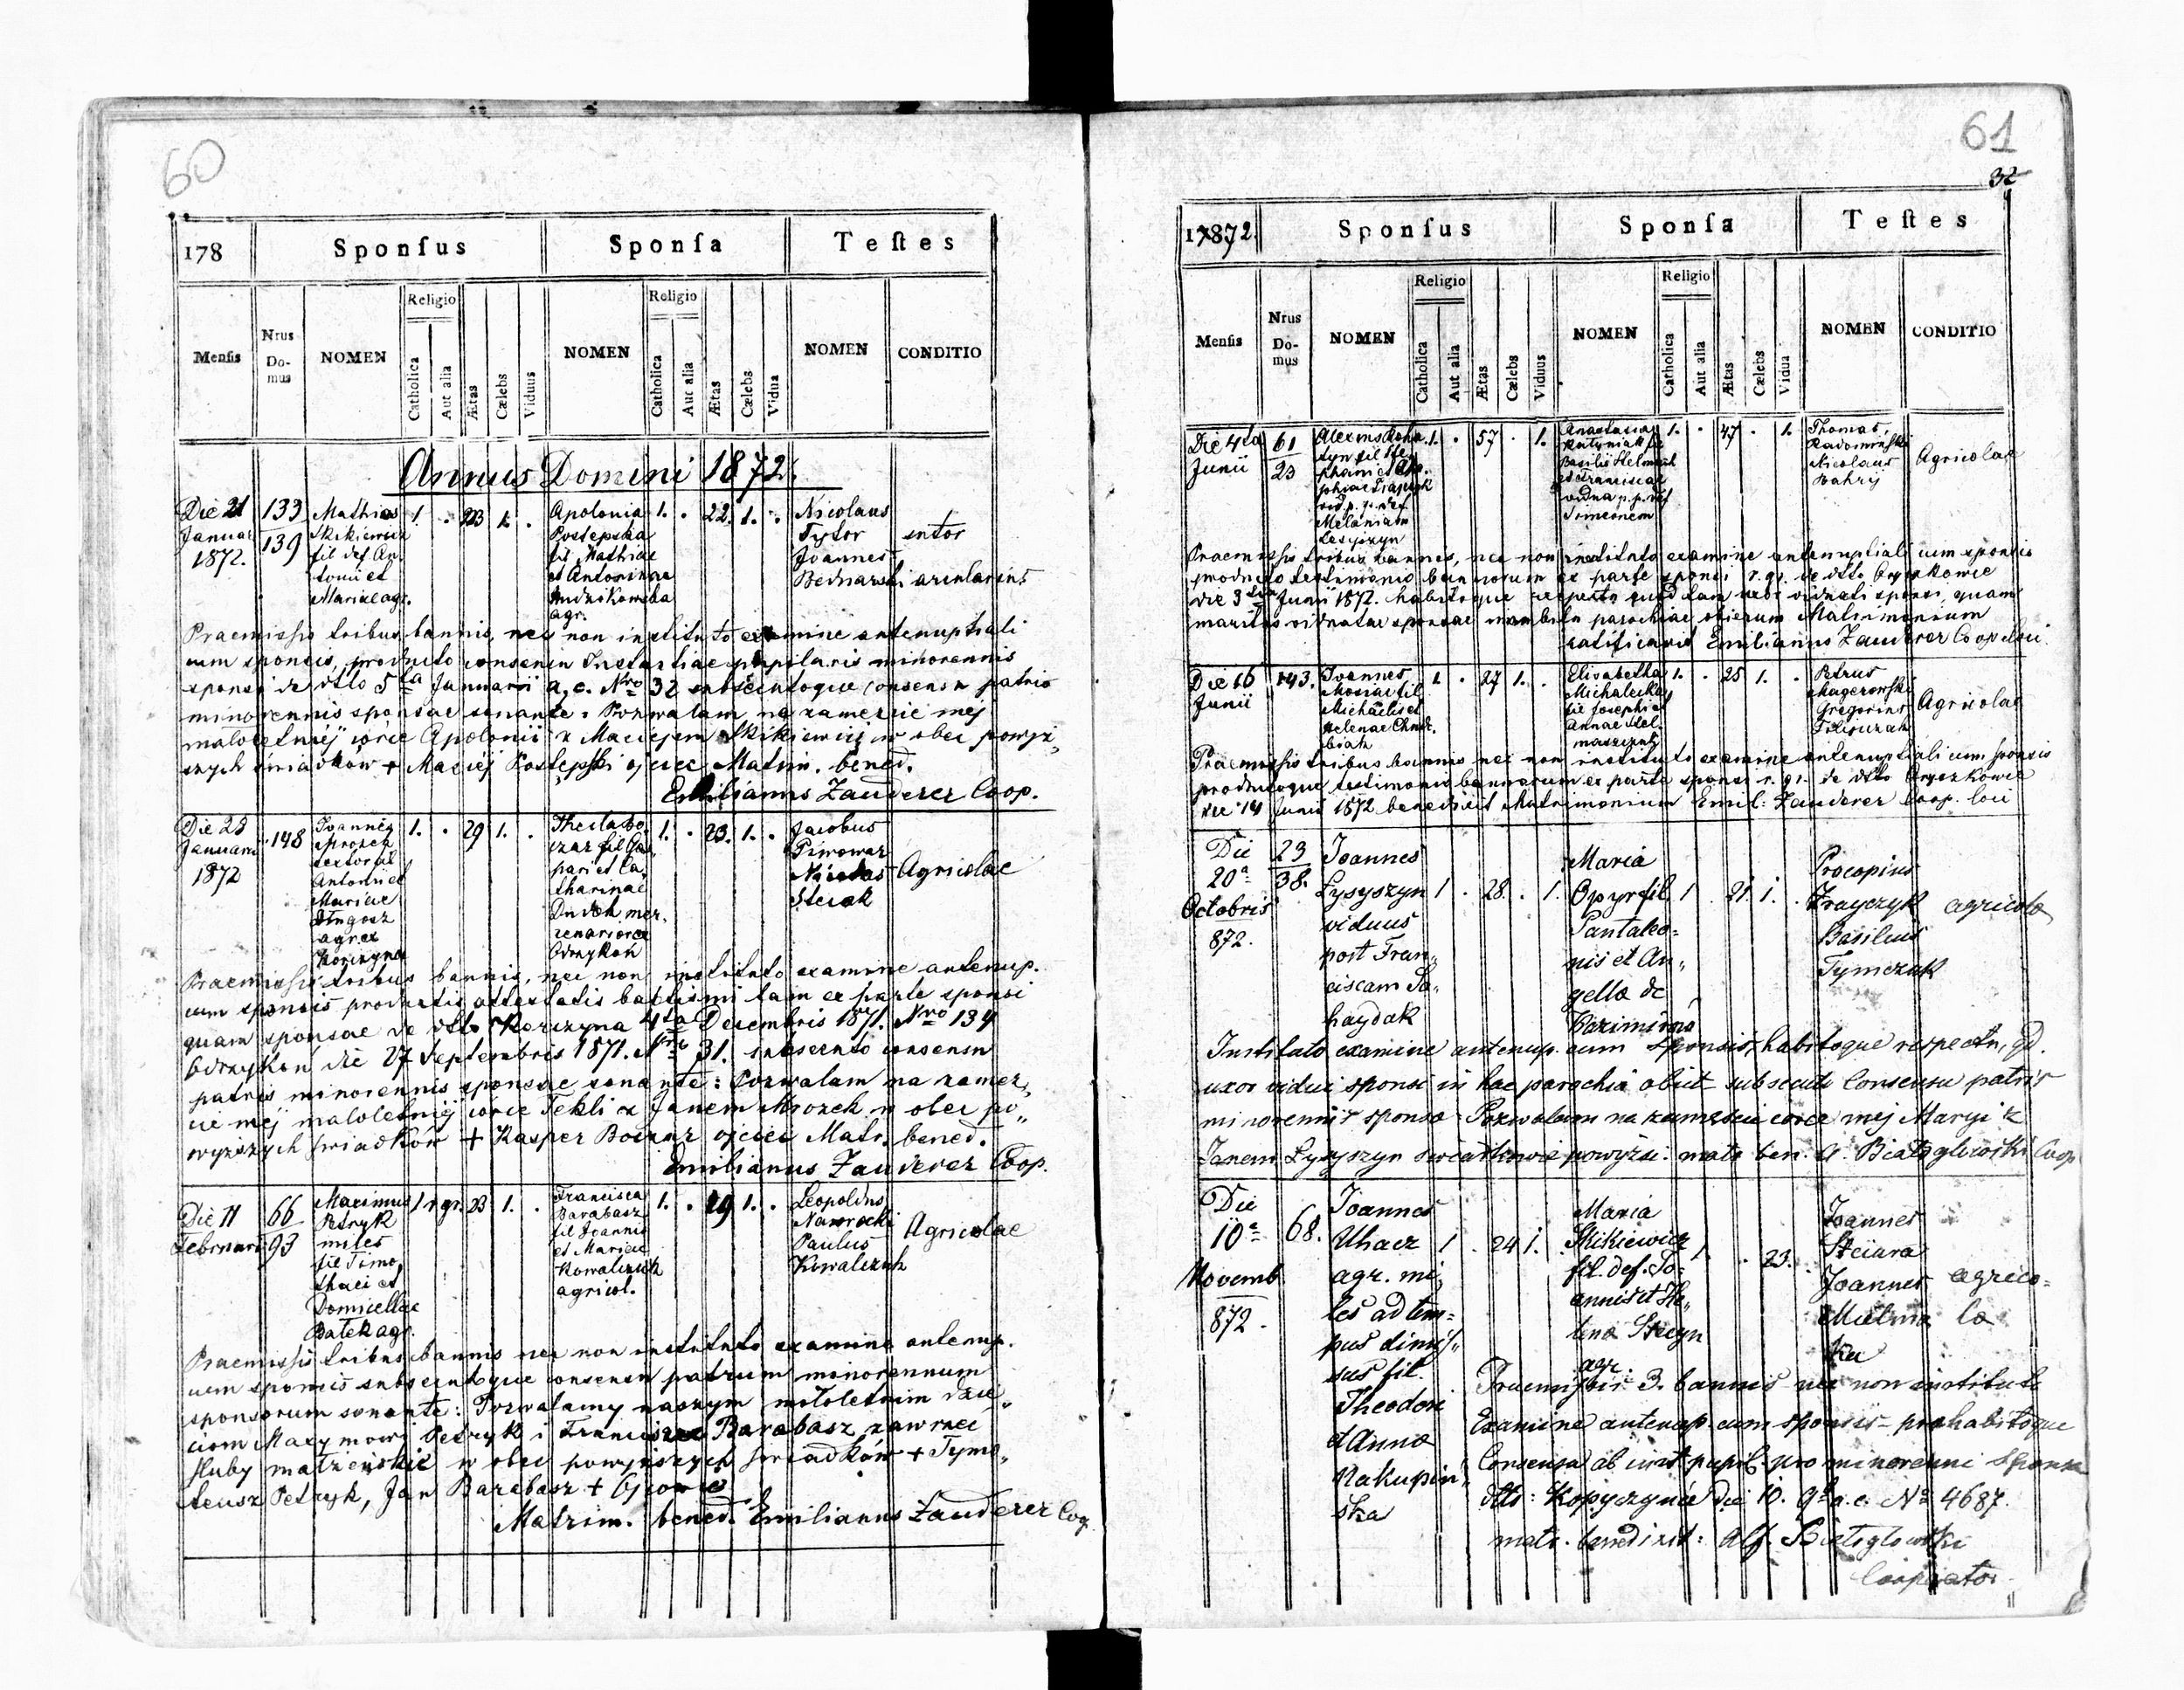 60
178 Sponſus Sponſa Teſtes
Menſis Nrus Do-mus NOMEN Religio Catholica Aut alia Ætas Cælebs Viduus NOMEN Religio Catholica Aut alia Ætas Cælebs Vidua NOMEN CONDITIO
Annus Domini 1872.
Die 21
Januar
1872.
133
139
Mathias
Skikiewicz
fil def. An,
tonii et
Mariae agr.
1. . 23 1. .
Apolonia
Postępska
fil. Mathiae
et Antoninae
Andzikowska
agr.
1. . 22. 1. .
Nicolaus
Tytor
Joannes
Bednarski
sutor
arcularius
Praemissis tribus bannis, nec non instituto examine antenuptiali
cum sponsis, producto consensu Instantiae pupilaris minorennis
sponsi de dtto 5ta Januarii a. c. Nro 32 subsecutoque consensu patris
minorennis sponsae sonante: Pozwalam na zamęzcie mej
małoletniej córce Apolonii z Maciejem Skikiewicz w obec powyż,
szych świadków + Maciej Postępski ojciec Matrim. bened.
Emilianus Zauderer Coop.
Die 28
Januarii
1872
148
Joannes
Mrozek
textor fil
Antonii et
Mariae
Długosz
agr. ex
Korczyna
1. . 29 1. .
Thecla Bo,
czar fil Gas,
pari et Ca,
tharinae
Dudek mer,
cenariorum
Odrzykoń
1. . 23. 1. .
Jacobus
Piwowar
Nicolas
Steiak
Agricolae
Praemissis tribus bannis, nec non instituto examine antenup.
cum sponsis productis attestatis baptismi tam ex parte sponsi
quam sponsae de dtto Korczyna 4ta Decembris 1871. Nro 134
Odrzykoń die 27 Septembris 1871. Nro 31. subsecuto consensu
patris minorennis sponsae sonante: Pozwalam na zamęz,
cie mej małoletniej córce Tekli z Janem Mrozek w obec po,,
wyższych świadków + Kasper Boczar ojciec Matr. bened.
Emilianus Zauderer Coop.
Die 11
Februarii
66
93
Maximus
Petryk
miles
fil Timo,
thaei et
Domicellae
Bałek agr.
1 r. gr. 23 1. .
Francisca
Barabasz
fil Joannis
et Mariae
Kowalczuk
agricol.
1. . 19 1. .
Leopoldus
Nawrocki
Paulus
Kowalczuk
Agricolae
Praemissis tribus bannis nec non instituto examine antenup.
cum sponsis subsecutoque consensu patrum minorennum
sponsorum sonante: Pozwalamy naszym małoletnim dzie,,
ciom Maxymowi Petryk i Francisce Barabasz zawrzec
śluby małżeńskie w obec powyższych świadków + Tymo,,
teusz Petryk, Jan Barabasz + Ojcowie
Matrim. bened. Emilianus Zauderer Coop.
61
32
17872. Sponſus Sponſa Teſtes
Menſis Nrus Do-mus NOMEN Religio Catholica Aut alia Ætas Cælebs Viduus NOMEN Religio Catholica Aut alia Ætas Cælebs Vidua NOMEN CONDITIO
Die 4ta
Junii
61
23
fil Ste,
phani et
vid. p. p. def.
Melaniam
Łesyszyn
1. . 57 . 1.
Anastasia
fil
Basilii
et Franciscae
vidua p. p. def
Simeonem
1. . 47 . 1.
Thomas
Radomiński
Nicolaus
Bahrij
Agricolae
Praemissis tribus bannis, nec non instituto examine antenuptiali cum sponsis
producto testimonio bannorum ex parte sponsi r. gr. de dtto Oryszkowce
die 3tia Junii 1872. habitoque respectu quod tam uxor viduati sponsi, quam
maritus viduatae sponsae in ambitu parochiae obierunt Matrimonium
ratificavit Emilianus Zauderer Coop loci
Die 16
Junii
143.
Joannes
fil
Michaelis et
Helenae Chmie,
1. . 27 1. .
Elisabetha
Michalecka
fil Josephi et
Annae
1. . 25 1. .
Petrus
Magerowski
Gregorius
Agricolae
Praemissis tribus bannis nec non instituto examine antenuptiali cum sponsis
productoque testimonio bannorum ex parte sponsi r. gr. de dtto Oryszkowce
die 14 Junii 1872 benedixit Matrimonium Emil. Zauderer Coop. loci
Die
20a
Octobris
872.
23
38.
Joannes
Łysyszyn
viduus
post Fran,,
ciscam Sa,
haydak
1 . 28. . 1.
Maria
Opyr fil.
Pantaleo=
nis et An,,
gella de
Kazimirow
1 . 21. 1. .
Procopius
Krayczyk
Basilius
Tymczuk
agricola
Instituto examine antenup. cum sponsis, habitoque respectu, qd.
uxor vidui sponsi in hac parochia obiit subsecuti Consensu patris
minorennis sponsa Pozwalam na zamęscie corce mej Maryi z
Janem Łysyszyn swiadkowie powyżsi: matr. ben. A. Białogłowski Coop
Die
10a
Novemb
872.
68.
Joannes
Uhacz
agr. mi,
les ad tem=
pus dimis,,
sus fil.
Theodori
et Anna
Nakupin,,
ska
1 . 24 1. .
Maria
Skikiewicz
fil. def. Jo=
annis et He,,
lena Stecyn
agr.
1 . 23.
Joannes
Steciura
Joannes
Mielnia
ku
agrico=
la
Praemissis 3. bannis nec non institute
Examine antenup. cum sponsis prohabitoque
Consensu ab inst. pupil. pro minorenni sponsa
dtto: Kopyczynce die 10. 9b. a. c. No 4687.
matr. benedixit: Alf. Białogłowski
Cooperator